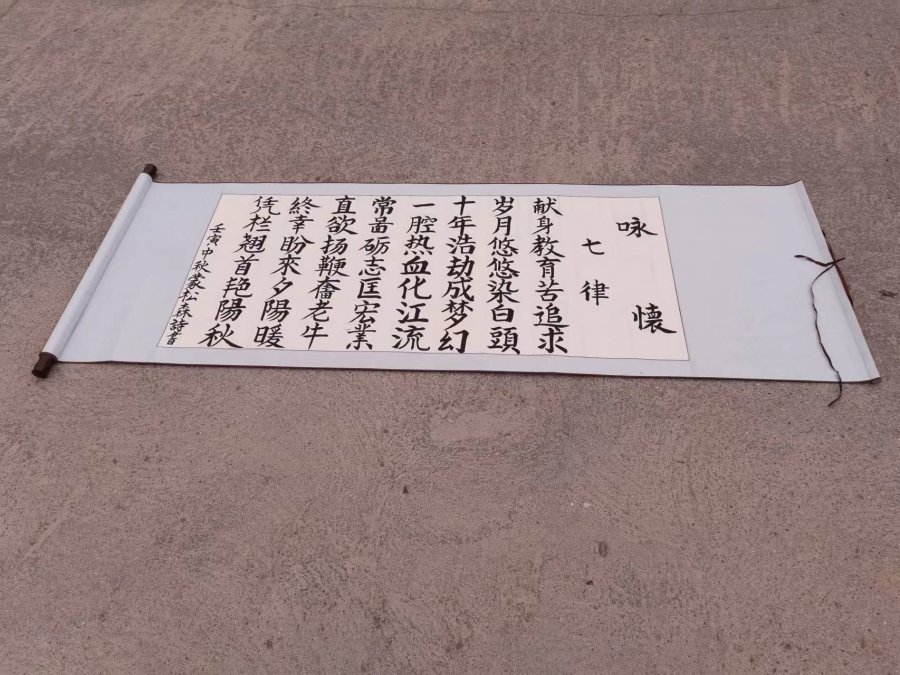 咏懷
七律
献身教育苦追求
岁月悠悠染白頭
十年浩劫成梦幻
一腔热血化江流
常啚砺志匡宏業
直欲扬鞭奮老牛
終幸盼來夕陽暖
凭栏翘首艳陽秋
壬寅中秋蒙松森詩書